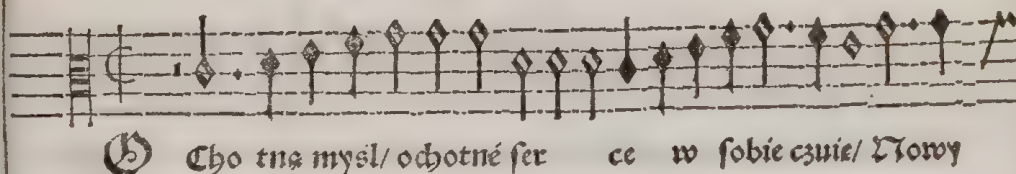 O Cho tną myśl/ ochotné ser ce w sobie czuie/ Nowy